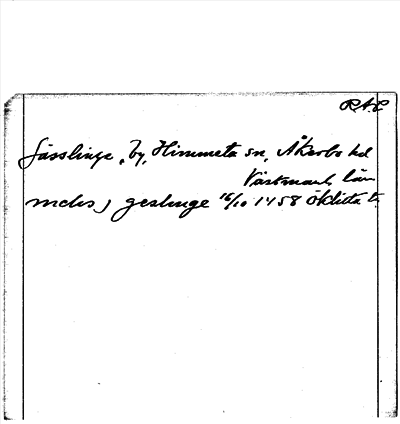 R.A.P.
Gässlinge, by, Himmeta sn, Åkerbo hd
Västmanl. län
mchs) geslinge 16/10 1458